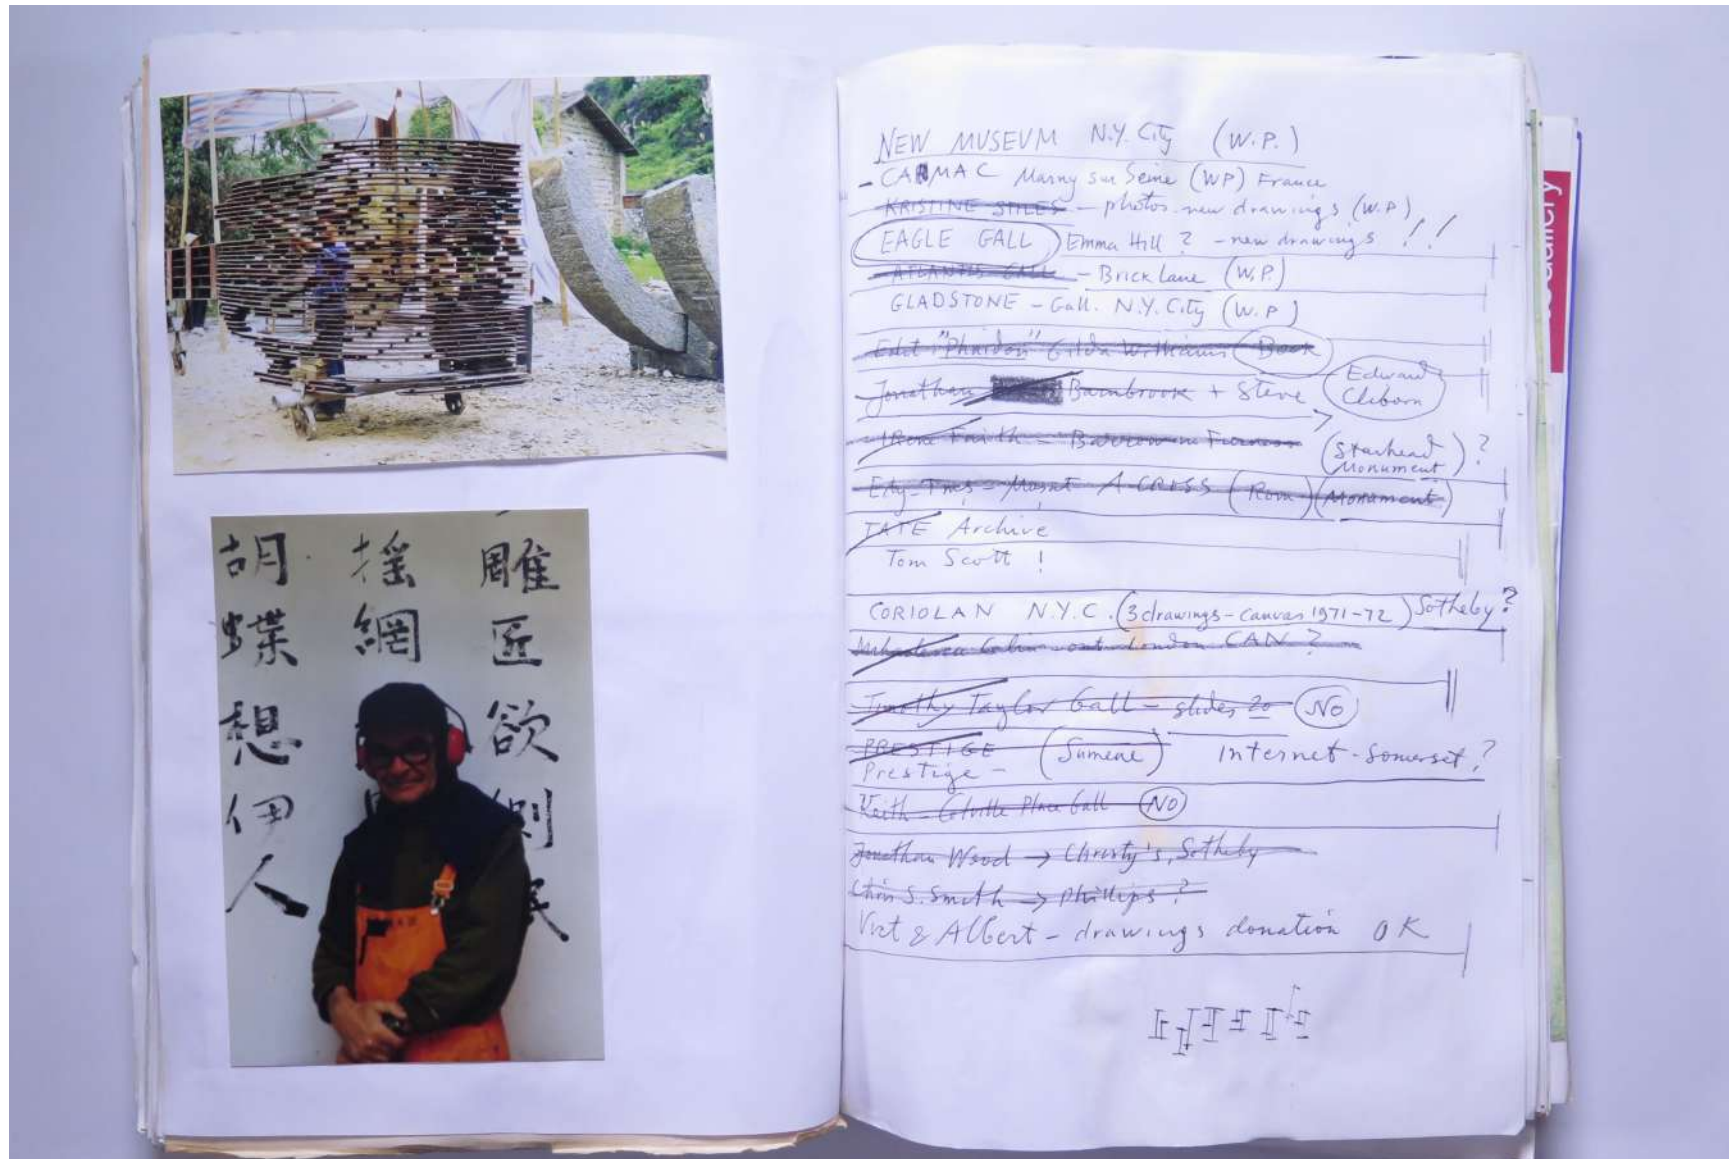 雕匠欲
摇網
胡蝶想伊人
NEW MUSEUM N.Y. City (W.P.)
- CAMAC Marny sur Seine (WP) France
KRISTINE STILES - photos - new drawings (W.P)
EAGLE GALL Emma Hill ? - new drawings !!
ATLANTIS GALL - Brick Lane (W.P.)
GLADSTONE - Gall. N.Y. City (W.P)
Edit "Phaidon" Gilda Williams Book
Jonathan Barnbrook + Steve Edward Cliborn
Irene Faith - Barrow in Furness (Starhead Monument) ?
A CROSS (Rom) (Monament)
TATE Archive
Tom Scott !
CORIOLAN N.Y.C. (3 drawings - canvas 1971-72) Sotheby ?
London CAN ?
Timothy Taylor Gall - slides 20 NO
PRESTIGE (Sumene) Internet - Somerset ?
Prestige -
Keith - Colville Place Gall NO
Jonathan Wood → Christy's, Sotheby
Chris S. Smith → Phillips ?
Vict & Albert - drawings donation OK